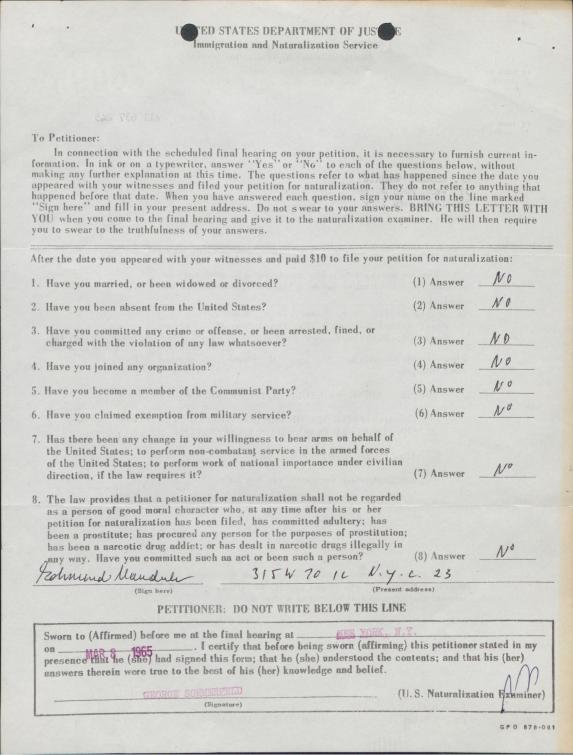 UNITED STATES DEPARTMENT OF JUSTICE
Immigration and Naturalization Service
To Petitioner:
In connection with the scheduled final hearing on your petition, it is necessary to furnish current in-
formation. In ink or on a typewriter, answer "Yes" or "No" to each of the questions below, without
making any further explanation at this time. The questions refer to what has happened since the date you
appeared with your witnesses and filed your petition for naturalization. They do not refer to anything that
happened before that date. When you have answered each question, sign your name on the line marked
"Sign here" and fill in your present address. Do not swear to your answers. BRING THIS LETTER WITH
YOU when you come to the final hearing and give it to the naturalization examiner. He will then require
you to swear to the truthfulness of your answers.
After the date you appeared with your witnesses and paid $10 to file your petition for naturalization:
1. Have you married, or been widowed or divorced? (1) Answer NO
2. Have you been absent from the United States? (2) Answer NO
3. Have you committed any crime or offense, or been arrested, fined, or
charged with the violation of any law whatsoever? (3) Answer NO
4. Have you joined any organization? (4) Answer NO
5. Have you become a member of the Communist Party? (5) Answer NO
6. Have you claimed exemption from military service? (6) Answer NO
7. Has there been any change in your willingness to bear arms on behalf of
the United States; to perform non-combatant service in the armed forces
of the United States; to perform work of national importance under civilian
direction, if the law requires it? (7) Answer NO
8. The law provides that a petitioner for naturalization shall not be regarded
as a person of good moral character who, at any time after his or her
petition for naturalization has been filed, has committed adultery; has
been a prostitute; has procured any person for the purposes of prostitution;
has been a narcotic drug addict; or has dealt in narcotic drugs illegally in
any way. Have you committed such an act or been such a person? (8) Answer No
315 W 70 N.Y.C. 23
(Sign here) (Present address)
PETITIONER: DO NOT WRITE BELOW THIS LINE
Sworn to (Affirmed) before me at the final hearing at NEW YORK, N.Y.
on MAR 8 1965. I certify that before being sworn (affirming) this petitioner stated in my
presence that he (she) had signed this form; that he (she) understood the contents; and that his (her)
answers therein were true to the best of his (her) knowledge and belief.
GEORGE SOMMERFELD (U. S. Naturalization Examiner)
(Signature)
GPO 878-091